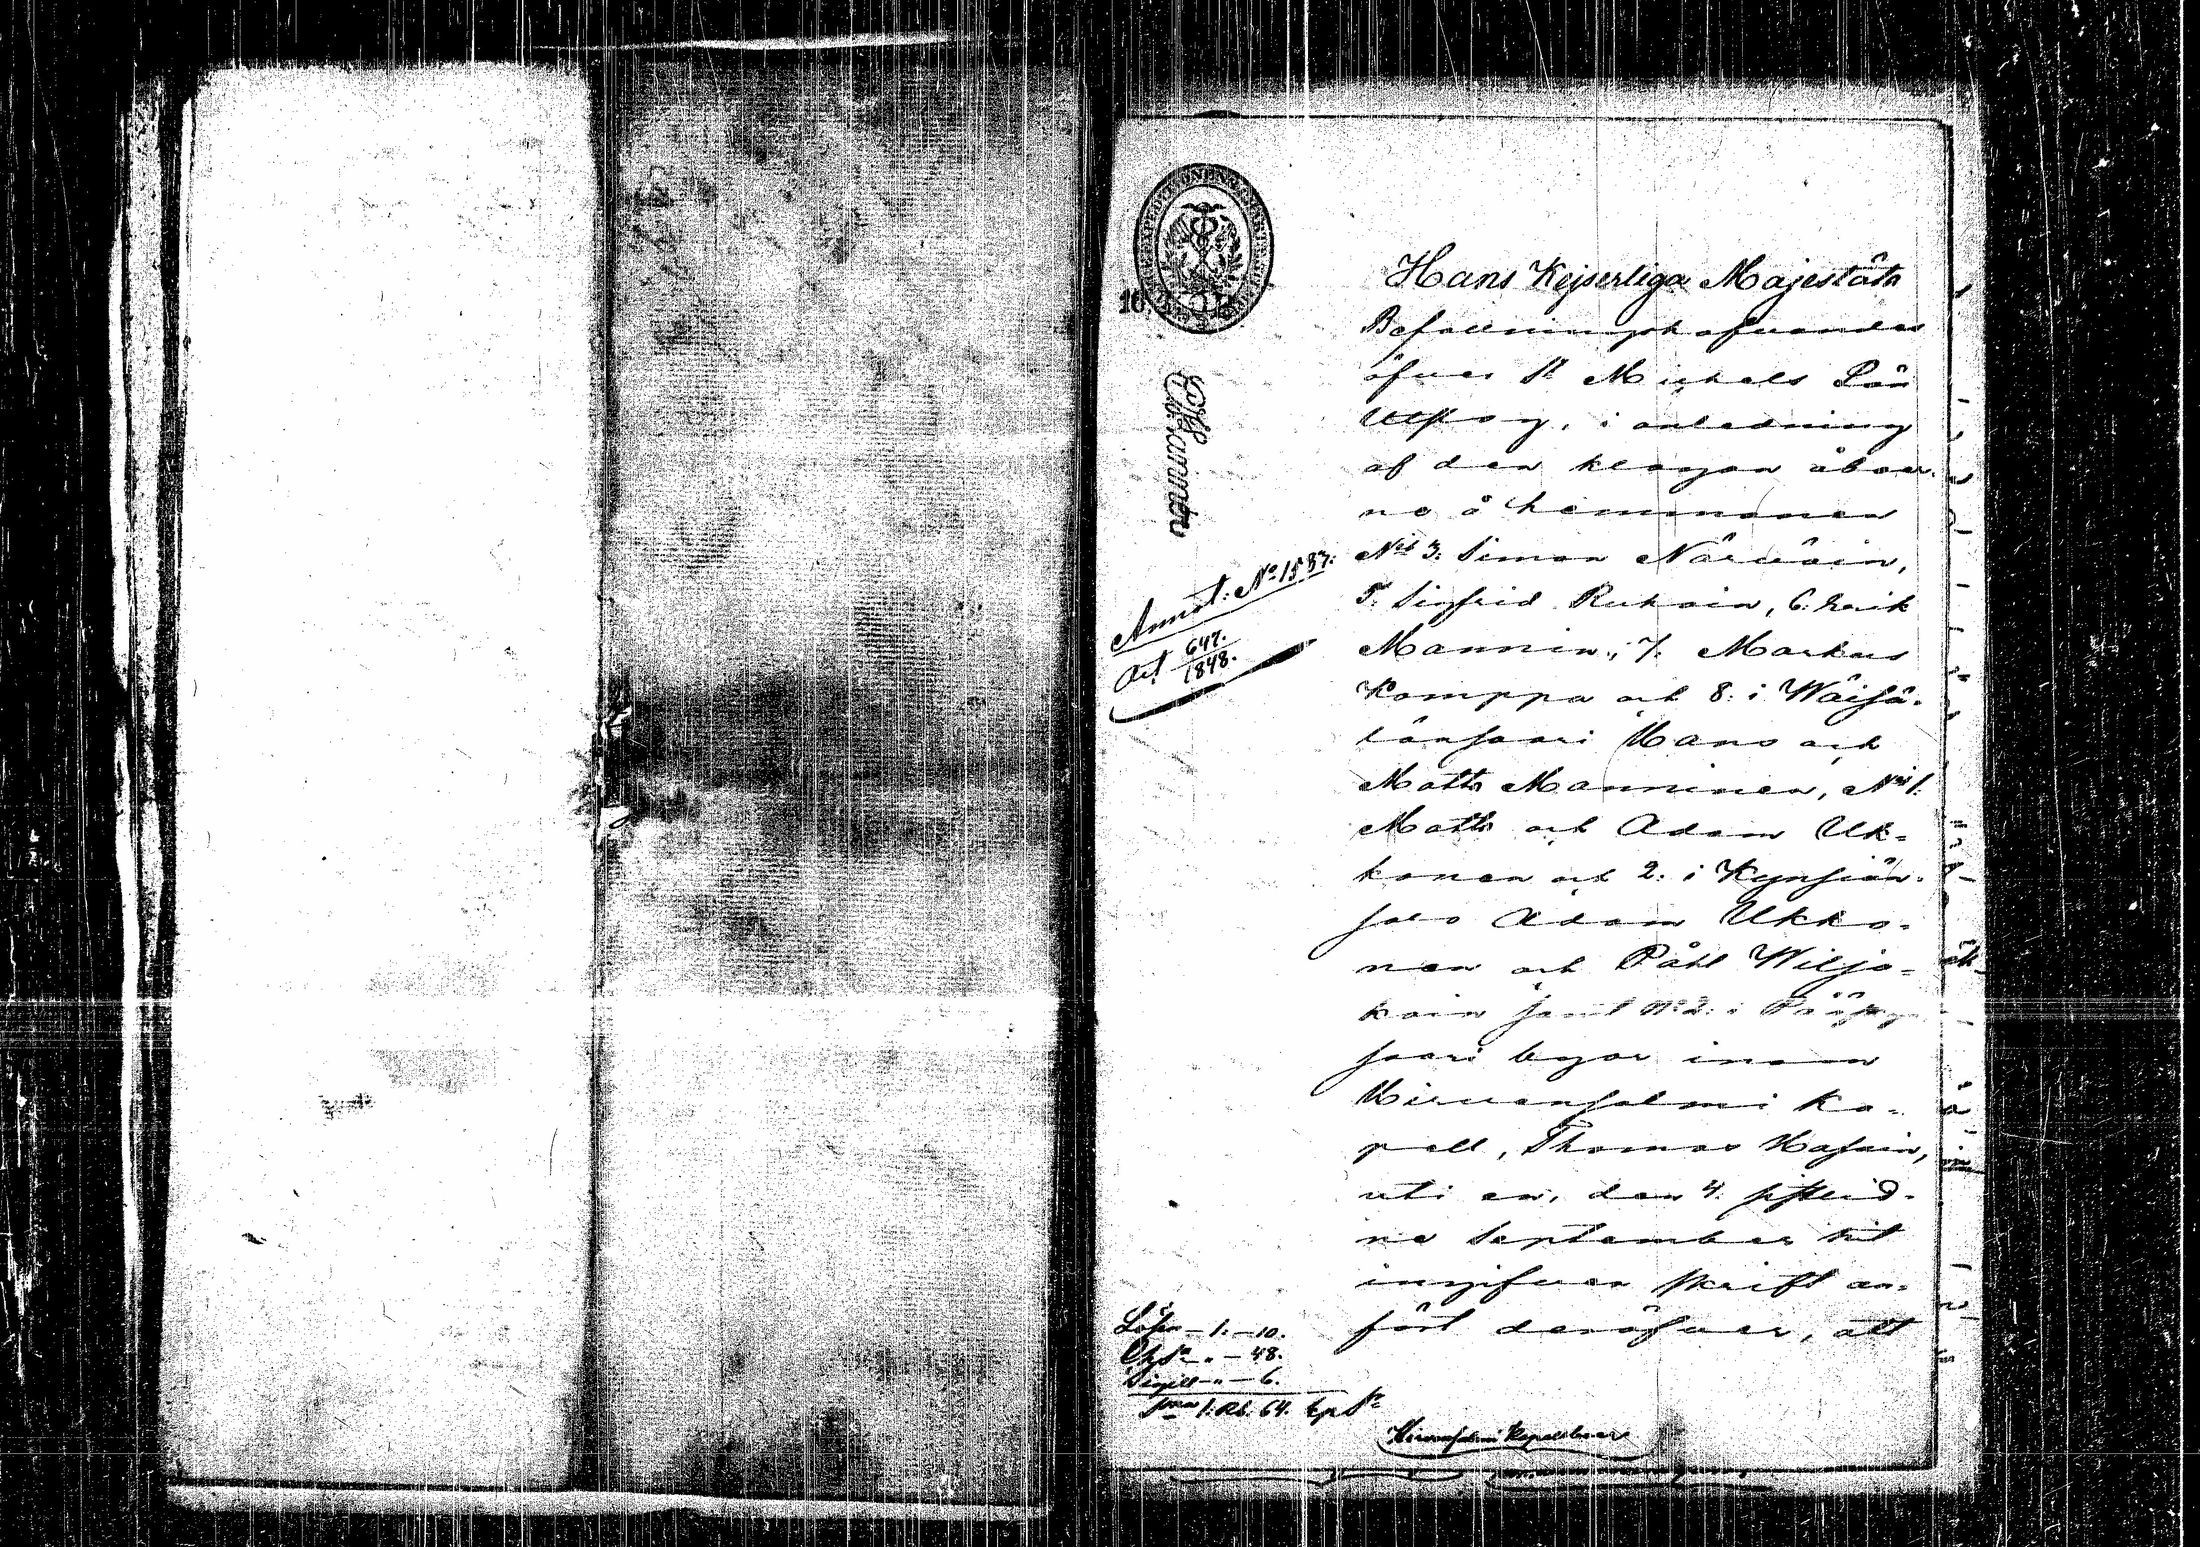 10.
Hans Kejserliga Majestäts
Befallningshafvandes
öfver St Michels Län
Utslag, i anledning
af den klagan åboer-
ne å hemmanen
Nris 3: Simon Närväin,
5: Sigfrid Ruhain, 6: Erik
Mannin, 7: Markus
Komppa och 8: i Wäisä-
länsaari Hans och
Matts Manninen, Nris 1:
Matts och Adam Uk-
konen och 2: i Kynsiän-
salo Adam Ukko-
nen och Påhl Wiljo-
kain samt No 2: i
saari byar inom
Hirvensalmi Ka-
pell, Thomas
uti en, den 4: sistlid-
ne September hit
ingifven skrift an-
fört deröfver, att
Annot: No 1587:
Act 647.
1848.
Lösen — 1: — 10.
— 48.
Sigill — " — 6.
1: Rb. 64. kop Sr
Hirvensalmi Kapellboer